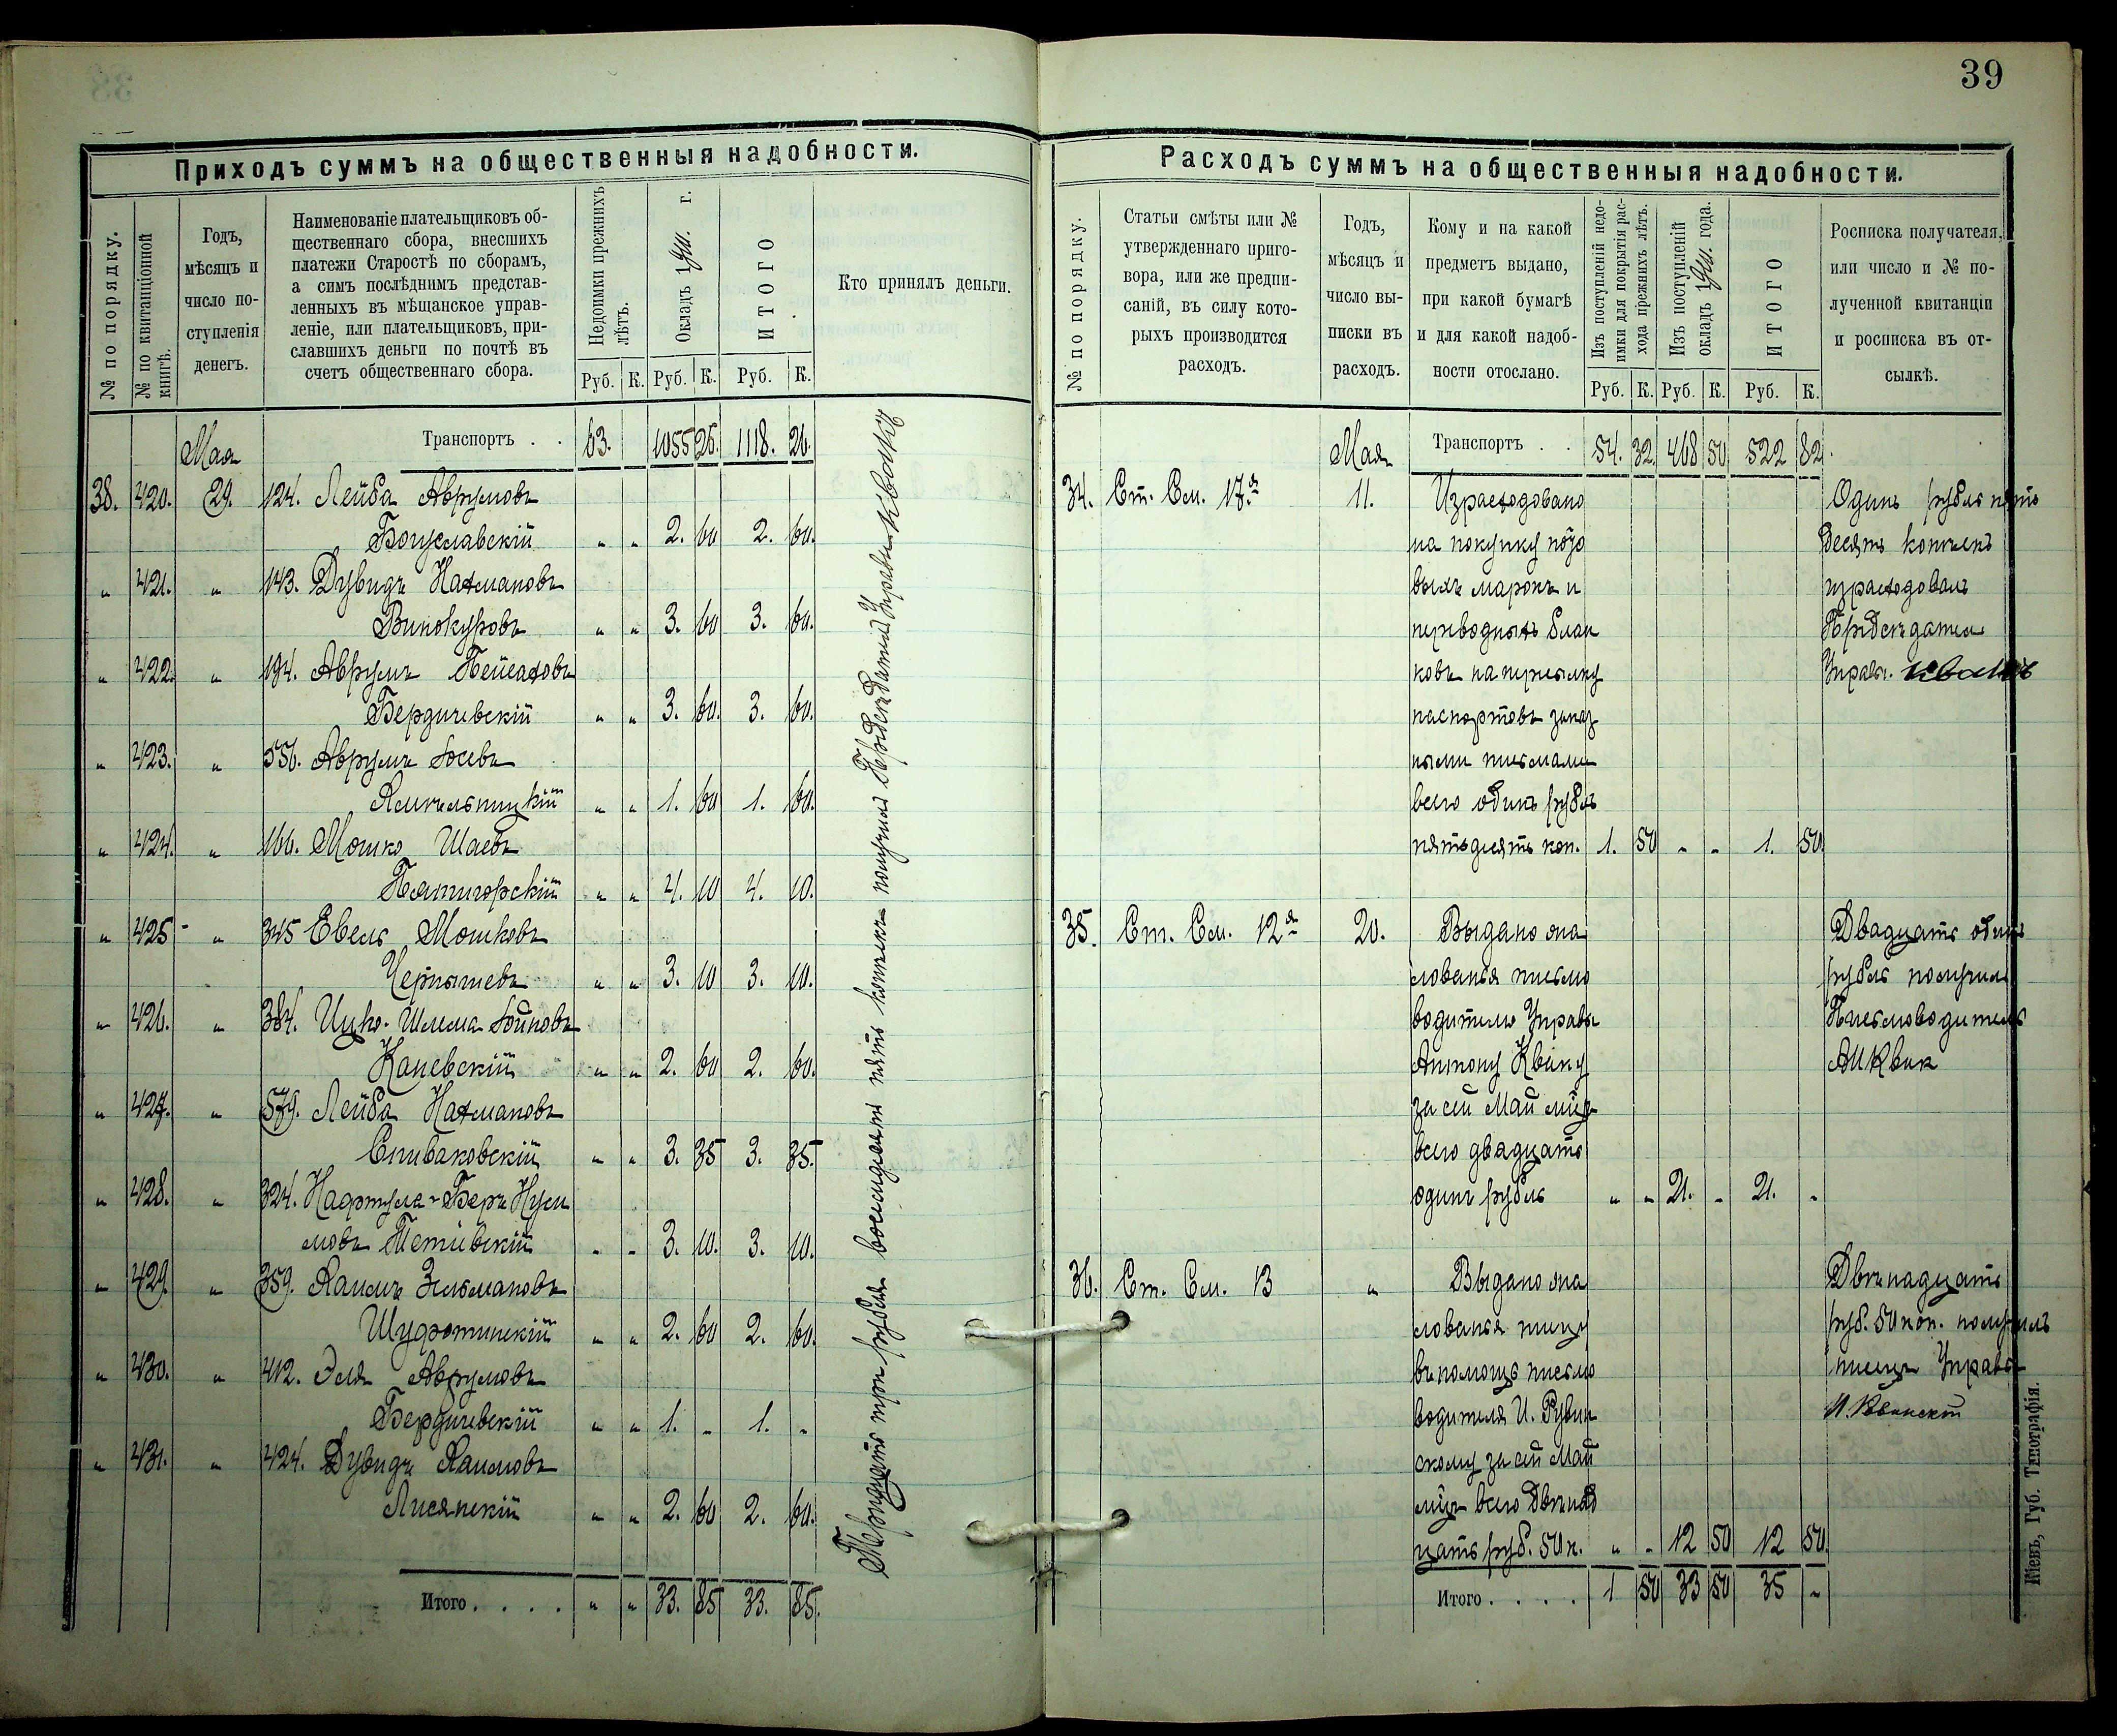 39
Приходъ суммъ на общественныя надобности.
№ по порядку.
№ по квитанціонной книгѣ.
Годъ, мѣсяцъ и число поступленія денегъ.
Наименованіе плательщиковъ об-
щественнаго сбора, внесшихъ
платежи Старостѣ по сборамъ,
а симъ послѣднимъ представ-
ленныхъ въ мѣщанское управ-
леніе, или плательщиковъ, при-
славшихъ деньги по почтѣ въ
счетъ общественнаго сбора.
Недоимки прежнихъ лѣтъ.
Окладъ 19 г.
ИТОГО
Кто принялъ деньги.
Руб. К. Руб. К. Руб. К.
Мая Транспортъ . . 63. 1055 26. 1118. 26.
38. 420. 29. 124. Лейба Аврумовъ
Богуславскій „ „ 2. 60 2. 60.
„ 421. „ 143. Дувидъ Нахмановъ
Винокуровъ „ „ 3. 60 3. 60.
„ 422. „ 194. Аврумъ Пейсаховъ
Бердичевскій „ „ 3. 60. 3. 60.
„ 423. „ 556. Аврумъ Іосевъ
Хмѣльницкій „ „ 1. 60 1. 60.
„ 424. „ 166. Мошко Шаевъ
Пятигорскій „ „ 4. 10 4. 10.
„ 425 „ 345 Евель Мошковъ
Чернышевъ „ „ 3. 10 3. 10.
„ 426. „ 384. Ицко-Шлема Іойновъ
Каневскій „ „ 2. 60 2. 60.
„ 427. „ 579. Лейба Нахмановъ
Спиваковскій „ „ 3. 35 3. 35.
„ 428. „ 324. Нафтула-Беръ Нуси
мовъ Тетіевскій „ „ 3. 10. 3. 10.
„ 429. „ 359. Хаимъ Зельмановъ
Шудротинскій „ „ 2. 60 2. 60.
„ 430. „ 412. Эля Аврумовъ
Бердичевскій „ „ 1. „ 1. „
„ 431. „ 424. Дувидъ Хаимовъ
Лисянскій „ „ 2. 60 2. 60.
Итого . . . . „ „ 33. 85 33. 85.
Тридцать три рубля восемдесят пять копѣекъ получилъ Предсѣдатель Управы
Расходъ суммъ на общественныя надобности.
№ по порядку.
Статьи смѣты или №
утвержденнаго приго-
вора, или же предпи-
саній, въ силу кото-
рыхъ производится
расходъ.
Годъ,
мѣсяцъ и
число вы-
писки въ
расходъ.
Кому и на какой
предметъ выдано,
при какой бумагѣ
и для какой надоб-
ности отослано.
Изъ поступленій недо-
имки для покрытія рас-
хода прежнихъ лѣтъ.
Изъ поступленій
окладъ 19 года.
ИТОГО
Росписка получателя,
или число и № по-
лученной квитанціи
и росписка въ от-
сылкѣ.
Руб. К. Руб. К. Руб. К.
Мая Транспортъ . . 54. 32. 468 50 522 82.
34. Ст. См. 17.я 11. Израсходовано Одинъ рубль пять
на покупку почто десятъ копѣекъ
выхъ марокъ и израсходовалъ
переводныхъ блан Предсѣдатель
ковъ на пересылку Управы.
паспортовъ заказ
ными письмами
всего одинъ рубль
пятьдесятъ коп. 1. 50 „ „ 1. 50
35. Ст. См. 12я 20. Выдано жа Двадцать одинъ
лованья письмо рубль получилъ
водителю Управы Письмоводитель
Антону Квику А Квик
за сей Май мѣц
всего двадцать
одинъ рубль „ „ 21. „ 21. „
36. Ст. См. 13 „ Выдано жа Двѣнадцать
лованья писцу руб. 50 коп. получилъ
въ помощь письмо писецъ Управы
водителя И. Рувин
скому за сей Май
мѣц всего двѣнад
цать руб. 50 к. „ „ 12 50 12 50.
Итого . . . . 1 50 33 50 35 „
Кіевъ, Губ. Типографія.